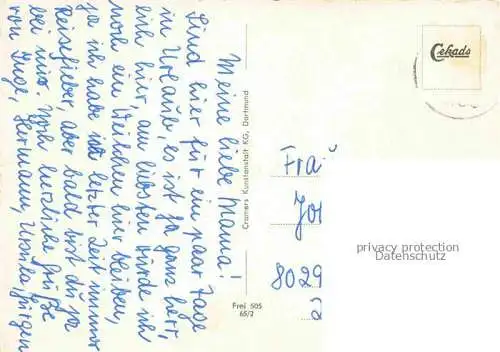 Meine liebe Mama!
Sind hier für ein paar Tage
im Urlaub, es ist ja ganz nett,
hier, am liebsten würde ich
noch ein Weilchen hier bleiben,
ja ich habe in letzter Zeit immer
Reisefieber, aber bald bist du ja
bei mir. Noch herzliche Grüße
von Inge, Hermann, Ursula, Jürgen
Cramers Kunstanstalt KG, Dortmund
Frei 505
65/2
Cekade
Fra
Jo
8029
privacy protection
Datenschutz